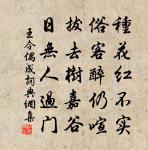 種花紅不实
俗客醉仍喧
拔去樹嘉谷
日無人過門
王令偶成詞典網集